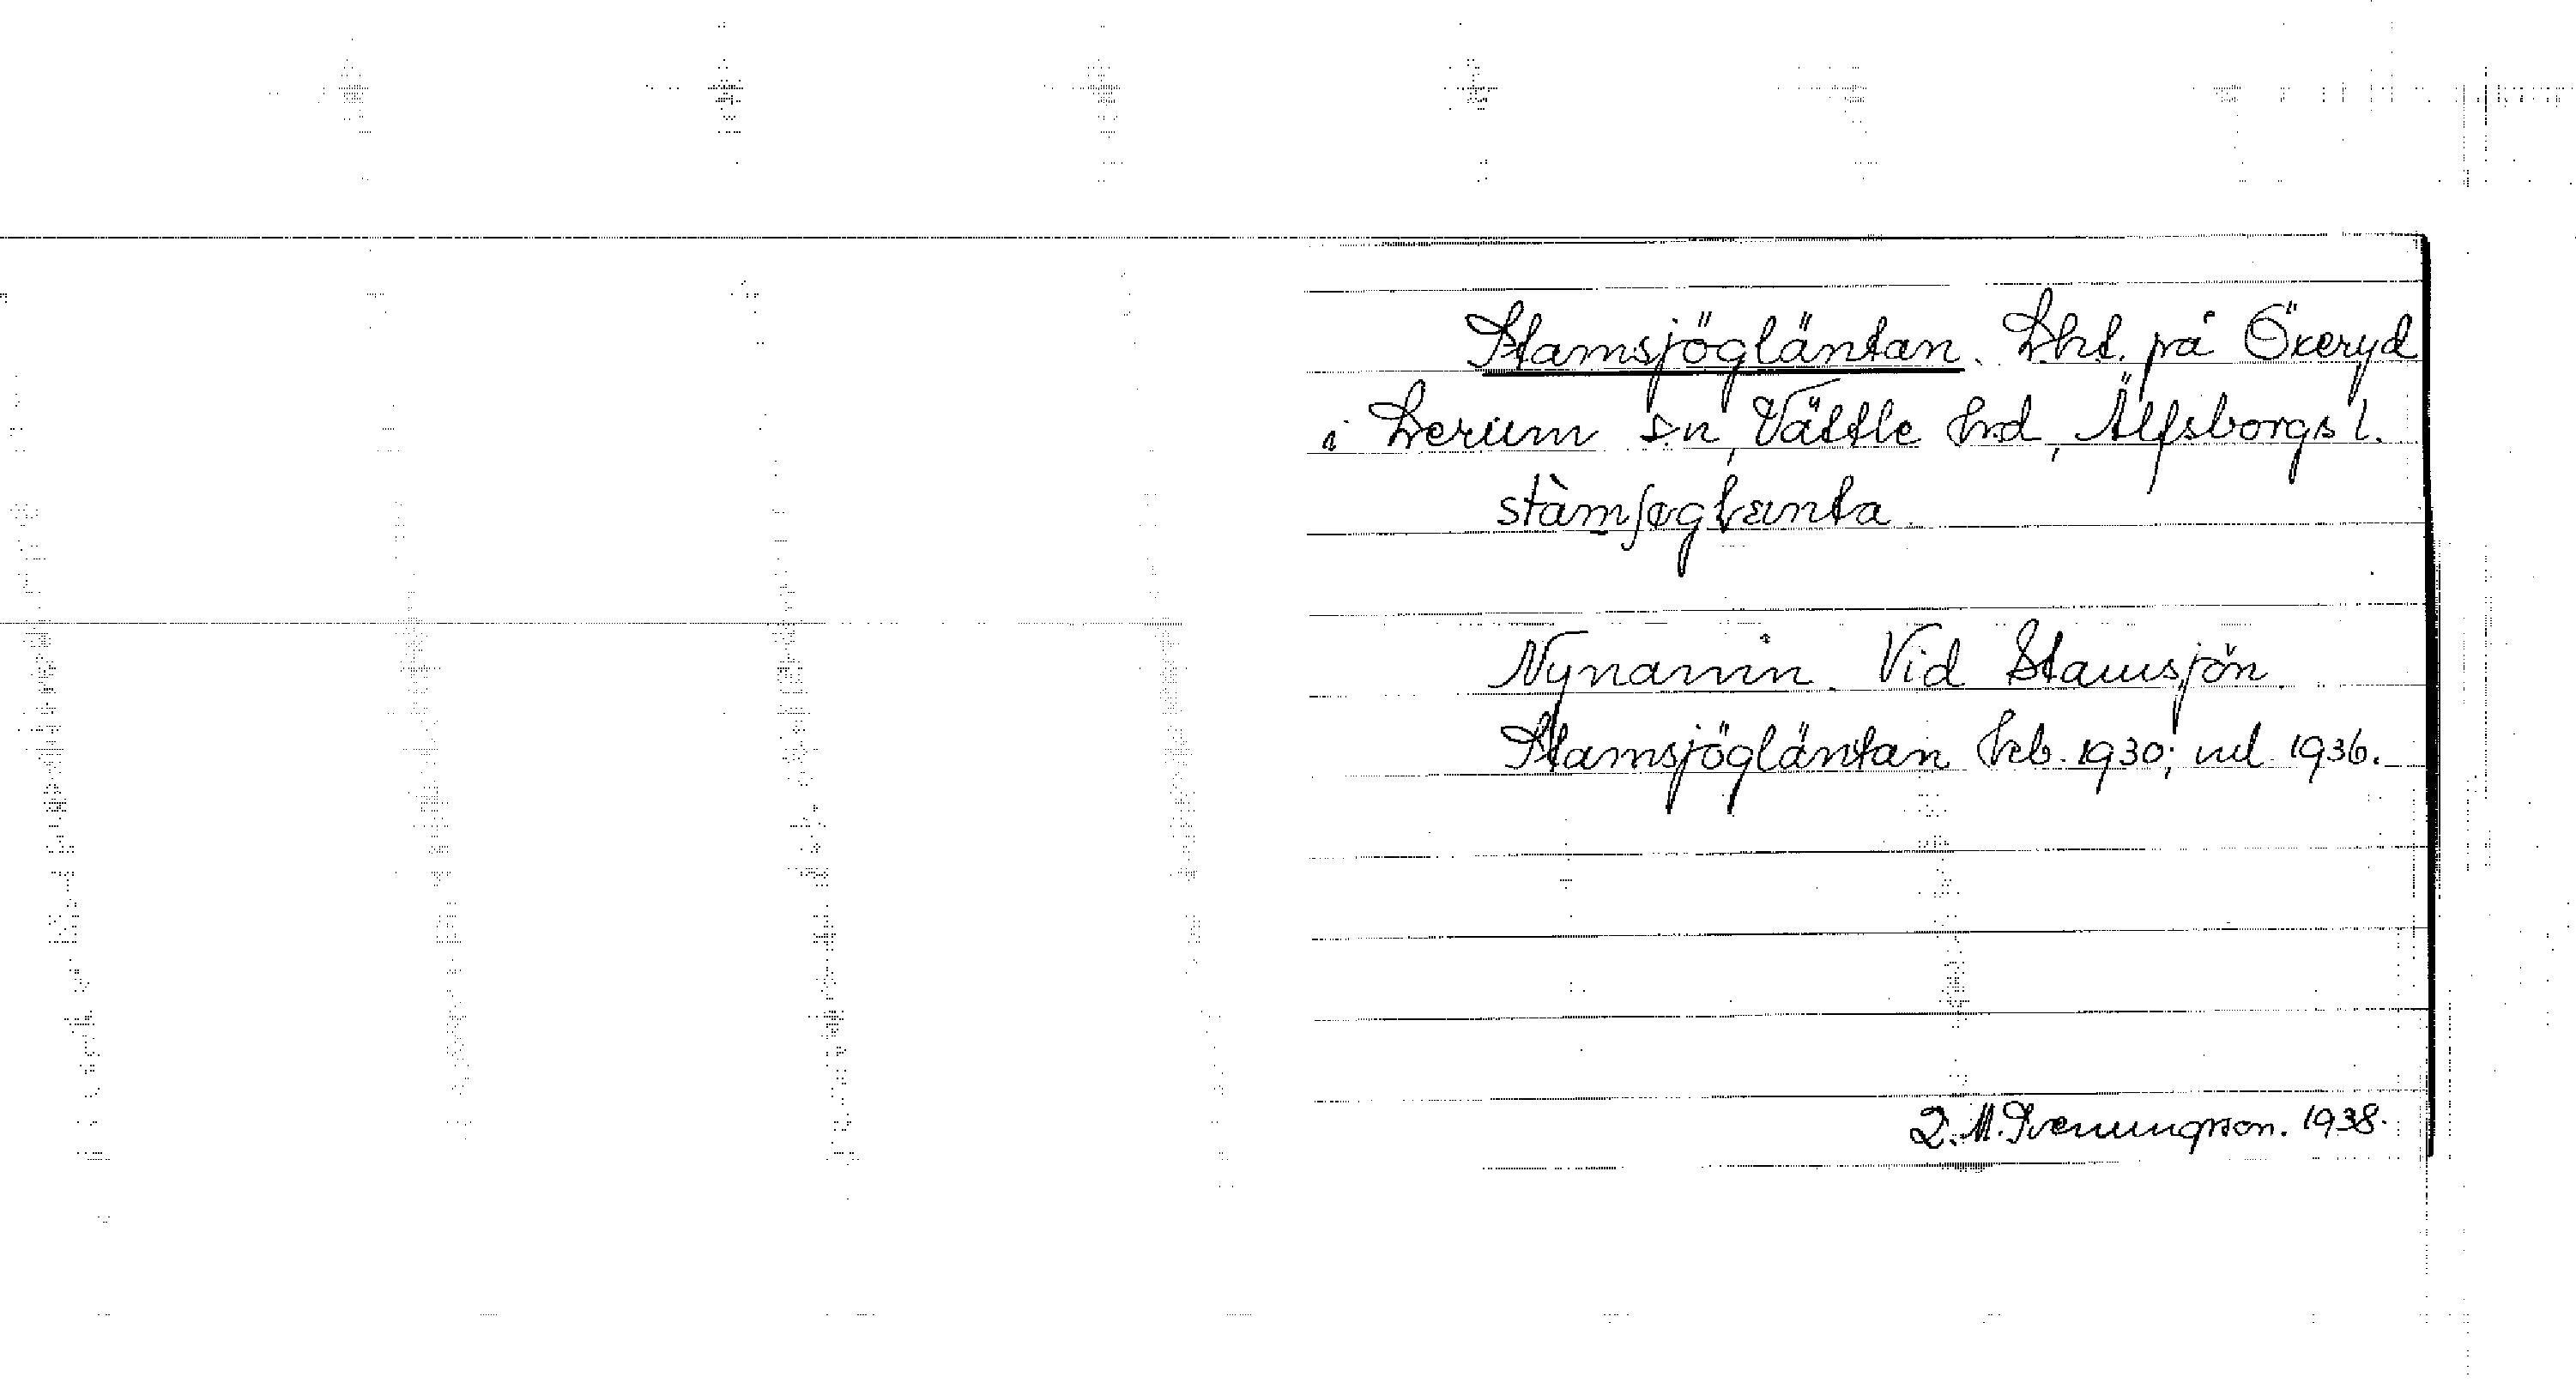 Stamsjögläntan. Lht. på Öxeryd
i Lerum sn, Vättle hd, Älfsborgs l.
stàmʃøglænta.
Nynamn. Vid Stamsjön.
Stamsjögläntan heb. 1930; ml 1936.
D. M. Svenungsson. 1938.